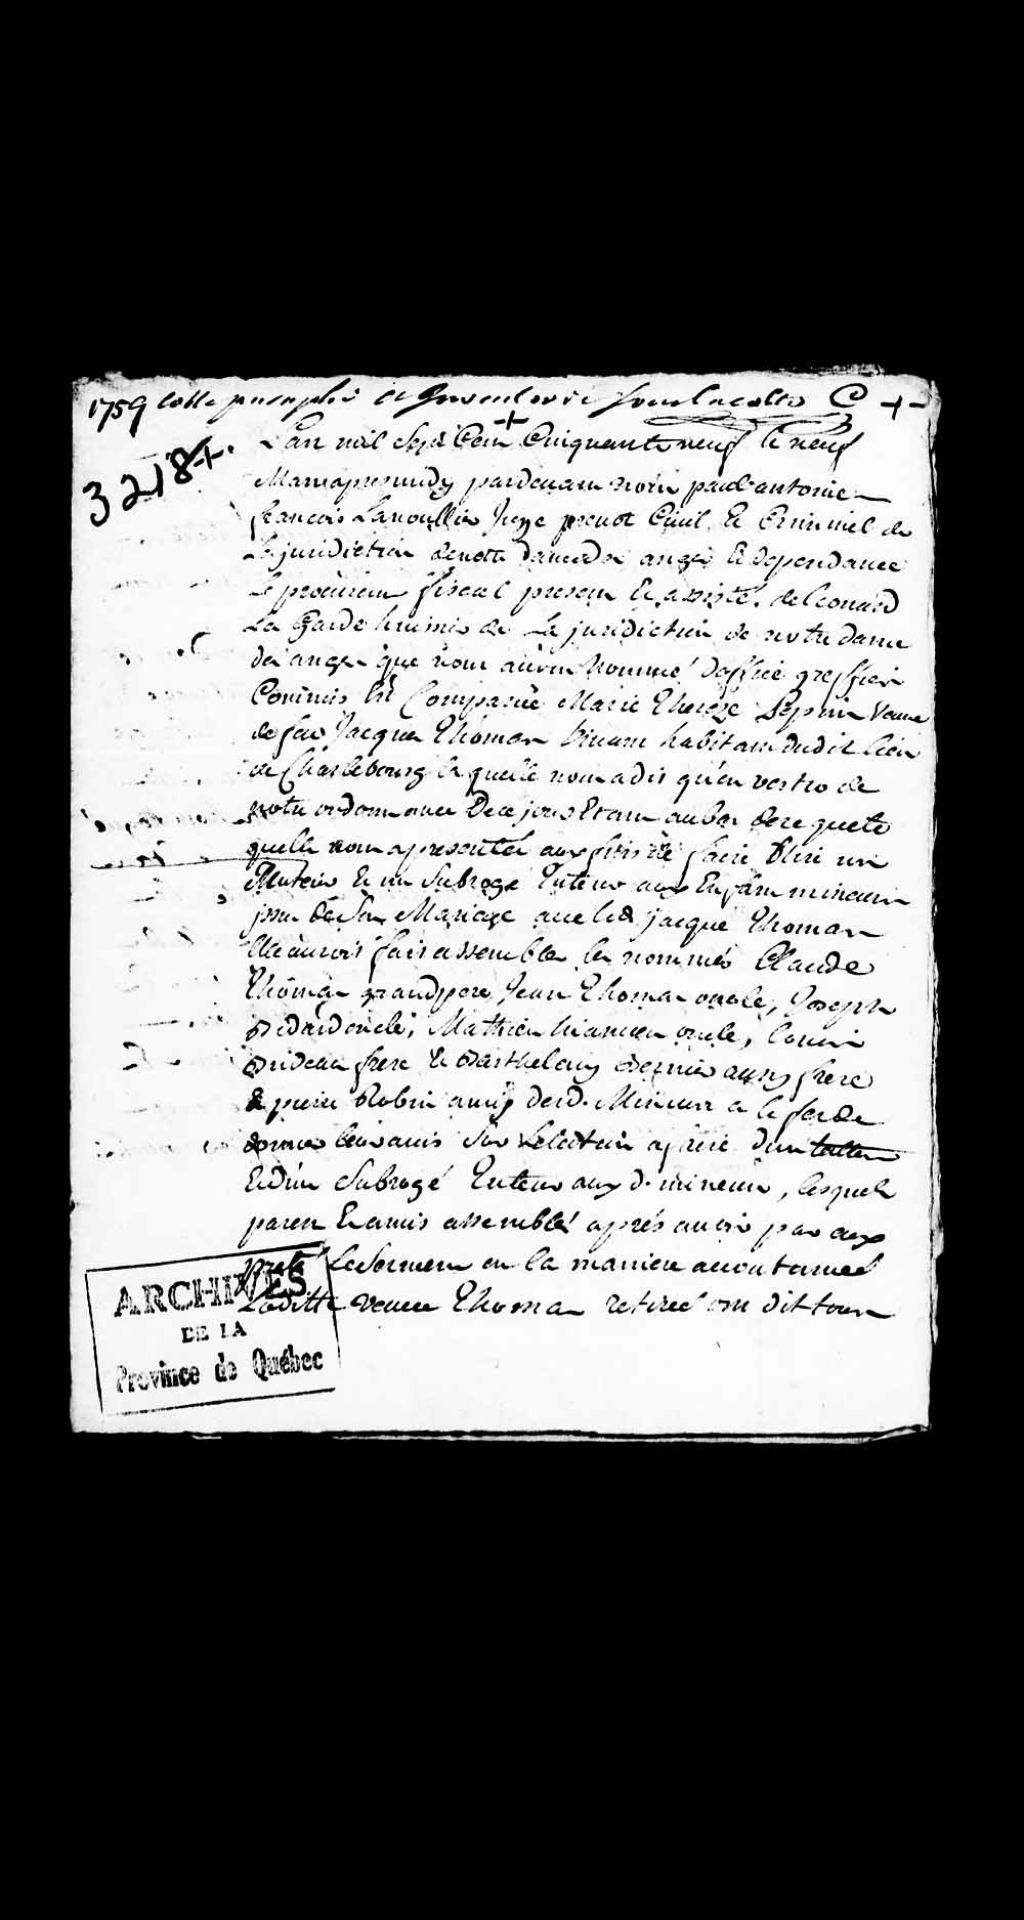 1759 Cotté paraphé et Inventorié sous la cotte C
3218
L'an mil sept Cent Cinquante neuf le neuf
Mars apres midy pardevant nous paul antoine
francois Lanoullier Juge prevot Civil et Criminel de
La juridiction de notre dame des anges et dependance
Le procureur fiscal present et assisté de leonard
La Garde huissier de La juridiction de notre dame
des anges que nous avons nommé d'office greffier
Commis Est Comparüe Marie Thereze veuve
de feu Jacque Thomas vivant habitant dudit lieu
de Charlebourg la quelle nous a dit qu'en vertu de
notre ordonnance De ce jour Etant au bas de requete
quelle nous a presentée aux fins de faire Elire un
Tuteur et un Subrogé Tuteur aux Enfans mineurs
issu de Son Mariage avec led jacque Thomas
Elle auroit fait assembler les nommés Claude
Thomas grand pere, Jean Thomas oncle, Joseph
Bedard oncle, Mathieu oncle, Louis
frere et Barthelemy aussy frere
& pierre Robin amy desd. Mineurs a leffet de
donner leur avis Sur Lelection a faire d'un tuteur
Et d'un Subrogé Tuteur aux d. mineurs, lesquels
parens Et amis assemblés après avoir par eux
preté Le Serment en la maniere accoutumée
Laditte veuve Thomas retirée ont dit tous
ARCHIVES
DE LA
Province de Québec